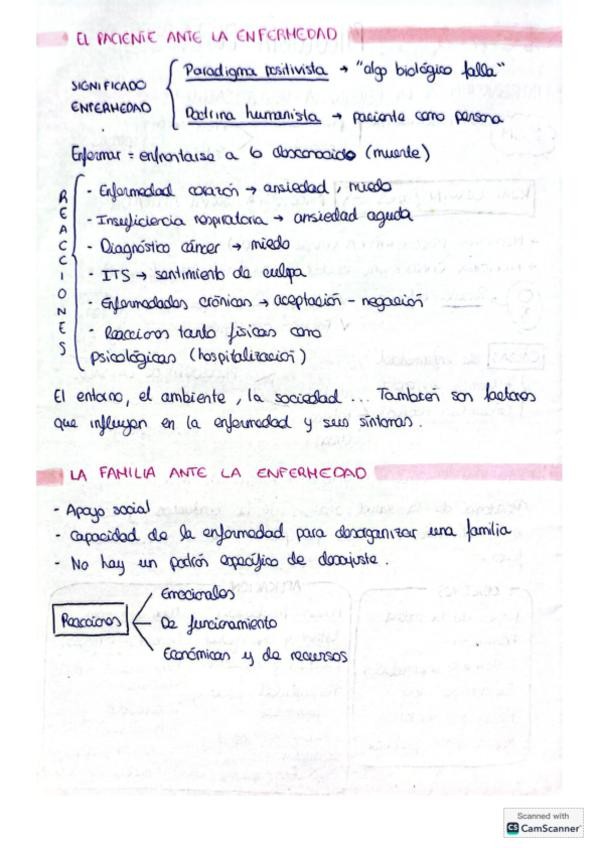 EL PACIENTE ANTE LA ENFERMEDAD
SIGNIFICADO
ENFERMEDAD
Paradigma positivista → "algo biológico falla"
Doctrina humanista → paciente como persona
Enfermar = enfrentarse a lo desconocido (muerte)
REACCIONES
- Enfermedad corazón → ansiedad, miedo
- Insuficiencia respiratoria → ansiedad aguda
- Diagnóstico cáncer → miedo
- ITS → sentimiento de culpa
- Enfermedades crónicas → aceptación - negación
- Reacciones tanto físicas como
psicológicas (hospitalización)
El entorno, el ambiente, la sociedad ... También son factores
que influyen en la enfermedad y sus síntomas.
LA FAMILIA ANTE LA ENFERMEDAD
- Apoyo social
- Capacidad de la enfermedad para desorganizar una familia
- No hay un patrón específico de desajuste.
Reacciones
Emocionales
De funcionamiento
Económicas y de recursos
Scanned with
CS CamScanner